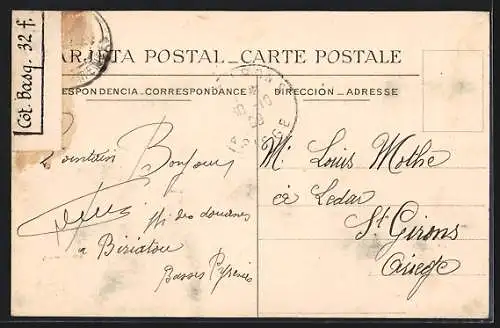 Côt. Basq. 32 f.
TARJETA POSTAL _ CARTE POSTALE
ESPONDENCIA _ CORRESPONDANCE
DIRECCIÓN _ ADRESSE
Lointain Bonjour
des douanes
a Biriatou
Basses Pyrénées
Mr Louis Mothe
à Ledar
St Girons
Ariège